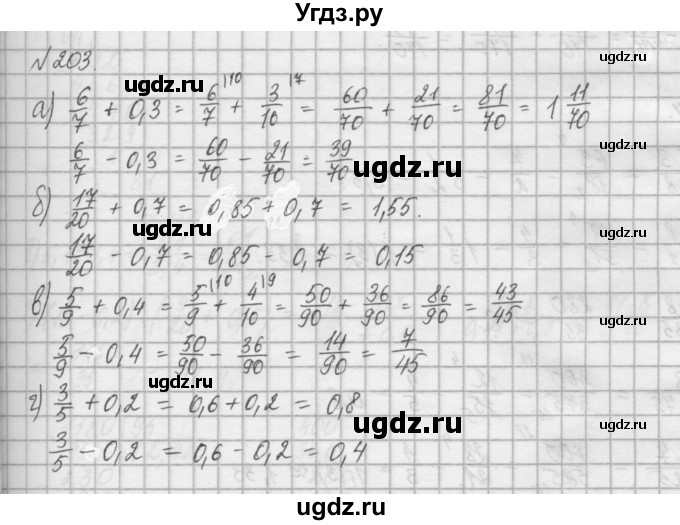 Угдз.ру
№ 203.
а) 6/7 + 0,3 = 6/7 |10 + 3/10 |7 = 60/70 + 21/70 = 81/70 = 1 11/70
6/7 - 0,3 = 60/70 - 21/70 = 39/70
б) 17/20 + 0,7 = 0,85 + 0,7 = 1,55.
17/20 - 0,7 = 0,85 - 0,7 = 0,15
в) 5/9 + 0,4 = 5/9 |10 + 4/10 |9 = 50/90 + 36/90 = 86/90 = 43/45
5/9 - 0,4 = 50/90 - 36/90 = 14/90 = 7/45
г) 3/5 + 0,2 = 0,6 + 0,2 = 0,8
3/5 - 0,2 = 0,6 - 0,2 = 0,4
ugdz.ru
ugdz.ru
ugdz.ru
ugdz.ru
ugdz.ru
ugdz.ru
ugdz.ru
ugdz.ru
ugdz.ru
ugdz.ru